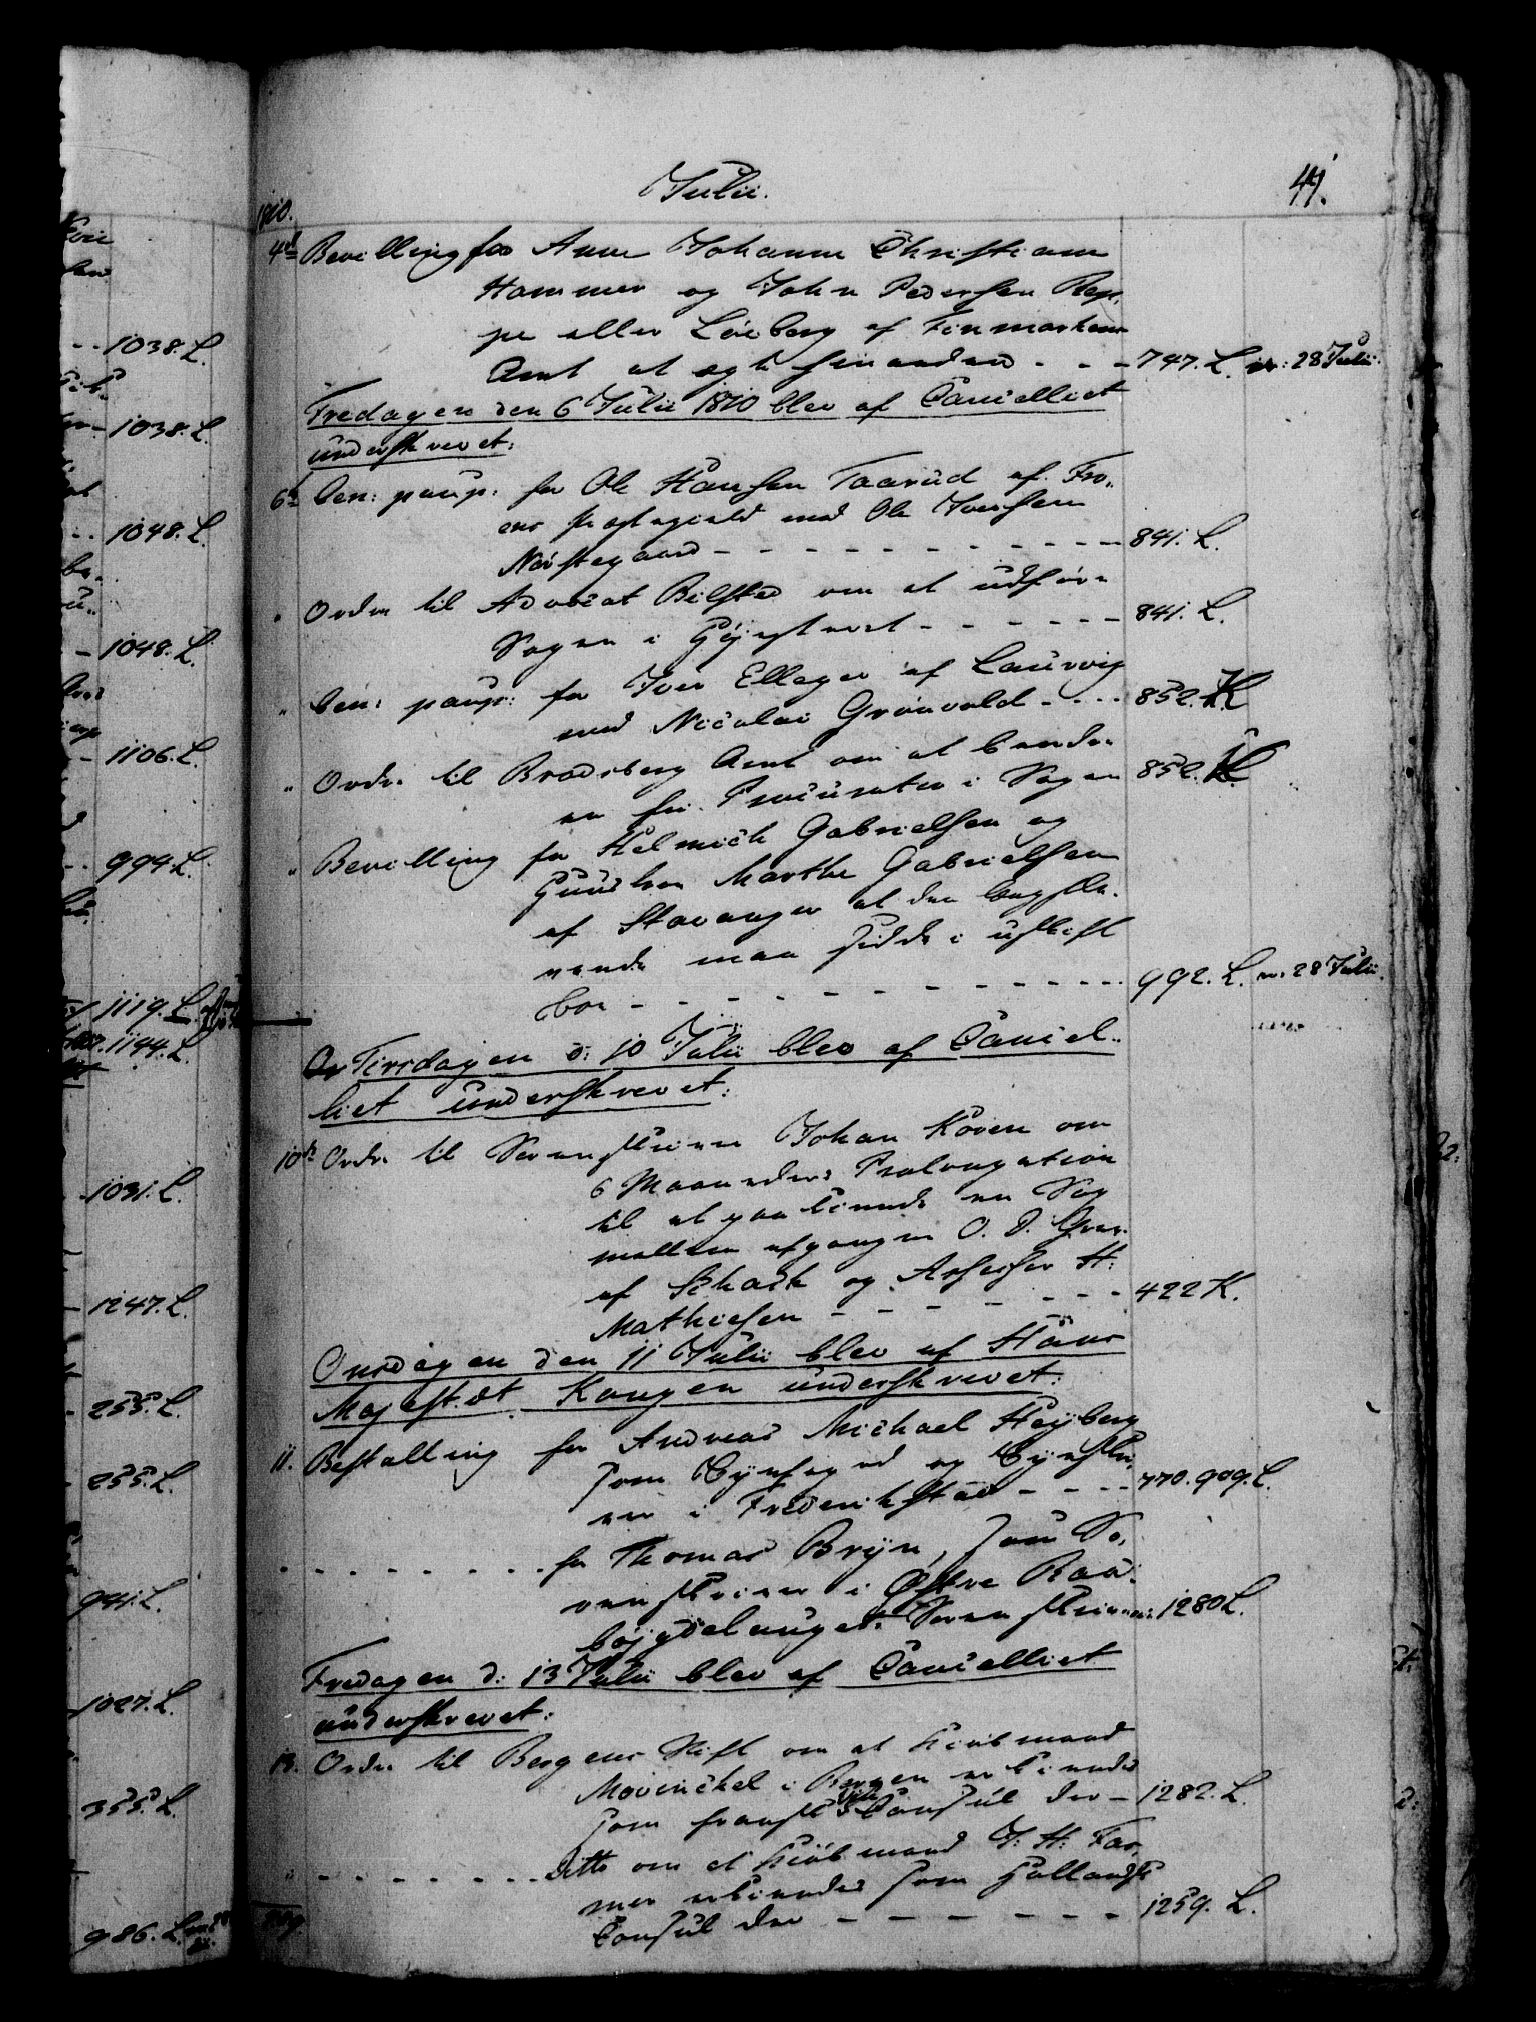 Julii.
41.
1810.
4de Bevilling for Anne Johanne Christiane
Hammer og John Pedersen Rep,
pe eller Löeberg af Finmarkens
Amt at ægte hinanden - - - 747. L. 28 Julii.
Fredagen den 6 Julii 1810 blev af Cancelliet
underskrevet:
6te Ben: paup: for Ole Hansen Taarud af Fro,
ens Præstegield mod Ole Iversen
Nörstegaard - - - 841. L.
" Ordre til Advocat Bilsted om at udføre
Sagen i Höjesteret - - - 841. L.
" Ben: paup: for Iver Elleger af Laurvig
mod Nicolai Grönvold - - - 852. K
" Ordre til Bradsberg Amt om at beordre
en fri Procurator i Sagen 852. K
" Bevilling for Helmich Gabrielsen og
Hustroe Marthe Gabrielsen
af Stavanger at den længstle-
vende maa sidde i uskift
boe - - - 992. L. 28 Julii.
Tirsdagen d: 10 Julii blev af Cancel-
liet underskrevet:
10de Ordre til Sorenskriver Johan Koren om
6 Maaneders Prolongation
til at paakiende en Sag
mellem afgangne O. D. Grev.
af Schack og Assessor H:
Mathiesen - - - 422 K.
Onsdagen den 11 Julii blev af Hans
Majestæt Kongen underskrevet:
11. Bestalling for Andreas Michael Heyberg
som Byefoged og Byeskri,
ver i Frederikstad - - - 770. 909. L.
- - - for Thomas Bryn, som So,
renskriver i Østre Raa-
böjgdelauget Sorenskriver: 1280 L.
Fredagen d: 13 Julii blev af Cancelliet
underskrevet:
13. Ordre til Bergens Stift om at Kiöbmand
Mowinckel i Bergen erkiendes
som fransk Vice Consul der - 1282. L.
" - - - Ditto om at Kiöbmand J: H: Fas,
mer erkiendes som hollandsk
Consul der - - - 1259. L.
1038. L.
1038. L.
1048. L.
1048. L.
1106. L.
994. L.
1119. L.
1144. L.
1031. L.
1247. L.
255. L.
255. L.
941. L.
1027. L.
355. L.
986. L.